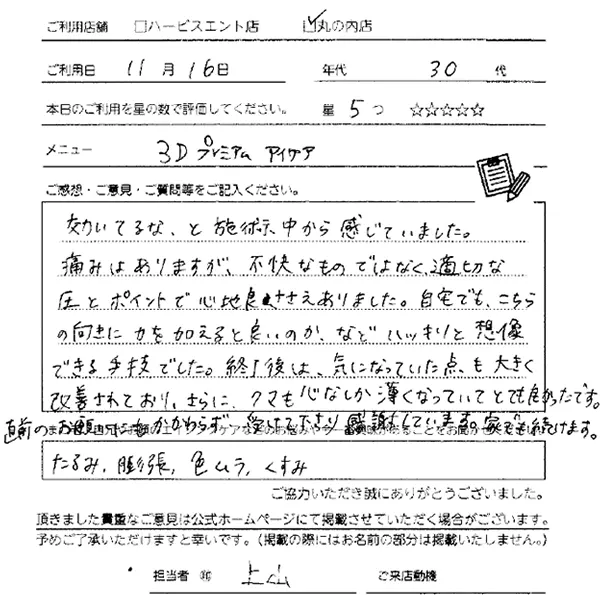 ご利用店舗 □ハービスエント店 ☑丸の内店
ご利用日 11月16日 年代 30代
本日のご利用を星の数で評価してください。 星 5つ ☆☆☆☆☆
メニュー 3Dプレミアム アイケア
ご感想・ご意見・ご質問等をご記入ください。
効いてるな、と施術中から感じていました。
痛みはありますが、不快なものではなく適切な
圧とポイントで心地良ささえありました。自宅でも、こちら
の向きに力を加えると良いのか、などハッキリと想像
できる手技でした。終了後は、気になっていた点、も大きく
改善されており、さらに、クマも心なしか薄くなっていてとても良かったです。
直前のお願いにもかかわらず、受けて下さり感謝しています。家でも続けます。
たるみ、膨張、色ムラ、くすみ
ご協力いただき誠にありがとうございました。
頂きました貴重なご意見は公式ホームページにて掲載させていただく場合がございます。
予めご了承いただけますと幸いです。（掲載の際にはお名前の部分は掲載いたしません。）
担当者 ㊞ 上山 ご来店動機